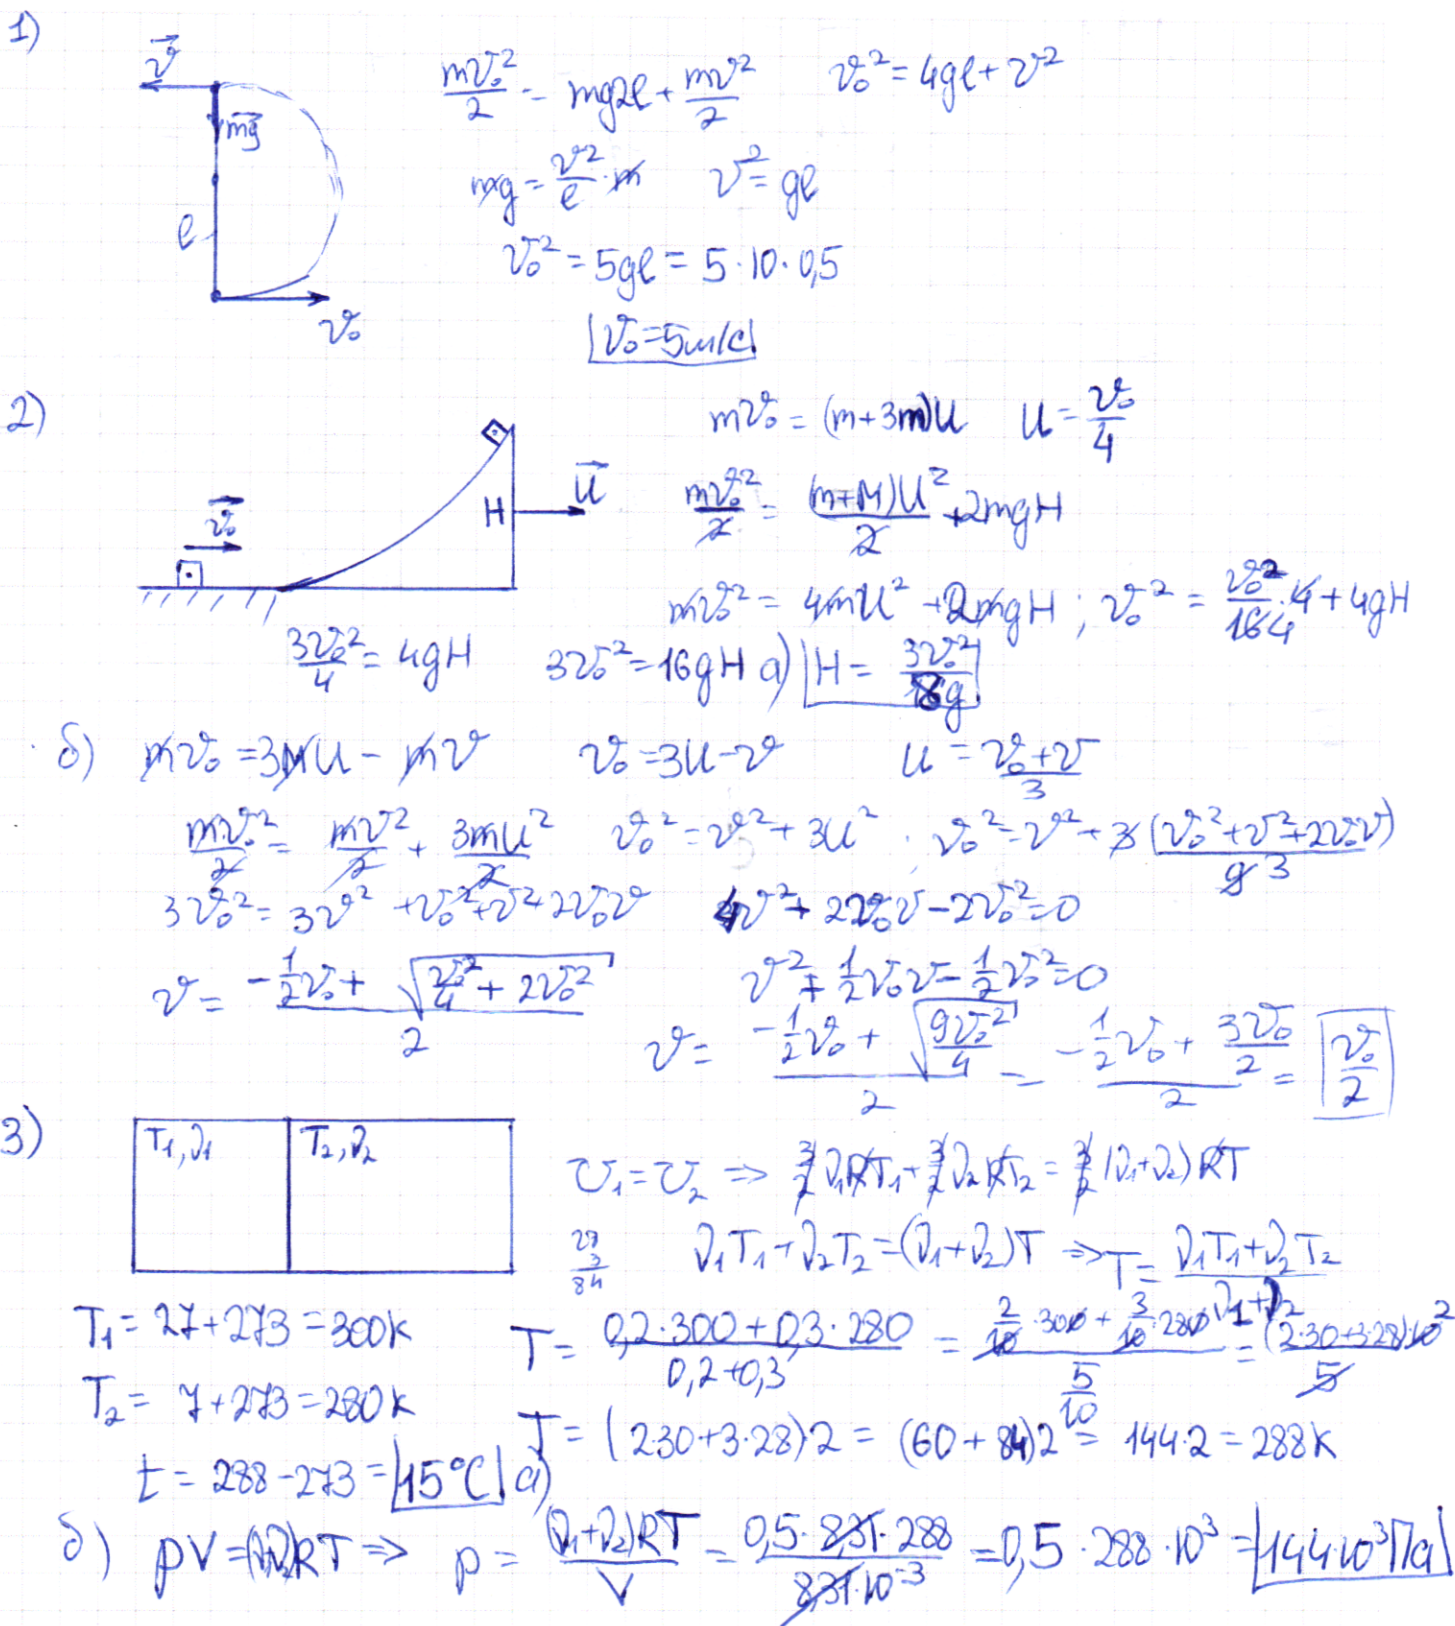 1)
v⃗
mv₀²/2 = mg2l + mv²/2    v₀² = 4gl + v²
mg⃗
mg = v²/l · m    v² = gl
l
v₀² = 5gl = 5·10·0,5
v₀
v₀ = 5 м/с
2)
mv₀ = (m+3m)U    U = v₀/4
mv₀²/2 = (m+M)U²/2 + 2mgH
H    U⃗
v⃗₀
mv₀² = 4mU² + 2mgH ; v₀² = v₀²/164 · 4 + 4gH
3v₀²/4 = 4gH    3v₀² = 16gH    а) H = 3v₀²/8g
б) mv₀ = 3MU - mv    v₀ = 3U - v    U = (v₀+v)/3
mv₀²/2 = mv²/2 + 3mU²/2    v₀² = v² + 3U²    v₀² = v² + 3(v₀²+v²+2v₀v)/9 3
3v₀² = 3v² + v₀² + v² + 2v₀v    4v² + 2v₀v - 2v₀² = 0
v = (-1/2 v₀ + √(v₀²/4 + 2v₀²))/2    v² + 1/2 v₀v - 1/2 v₀² = 0
v = (-1/2 v₀ + √(9v₀²/4))/2 = (-1/2 v₀ + 3v₀/2)/2 = v₀/2
3)
T₁, ν₁    T₂, ν₂
U₁ = U₂ ⇒ 3/2 ν₁RT₁ + 3/2 ν₂RT₂ = 3/2 (ν₁+ν₂)RT
28
3
84
ν₁T₁ + ν₂T₂ = (ν₁+ν₂)T ⇒ T = (ν₁T₁+ν₂T₂)/(ν₁+ν₂)
T₁ = 27+273 = 300K
T = (0,2·300 + 0,3·280)/(0,2+0,3) = (2/10·300 + 3/10·280)/(5/10) = (2·30+3·28)·10²/5
T₂ = 7+273 = 280K
T = (2·30+3·28)2 = (60+84)2 = 144·2 = 288K
t = 288-273 = 15°C а)
б) pV = (ν₁ν₂)RT ⇒ p = (ν₁+ν₂)RT/V = 0,5·8,31·288/8,31·10⁻³ = 0,5·288·10³ = 144·10³Па